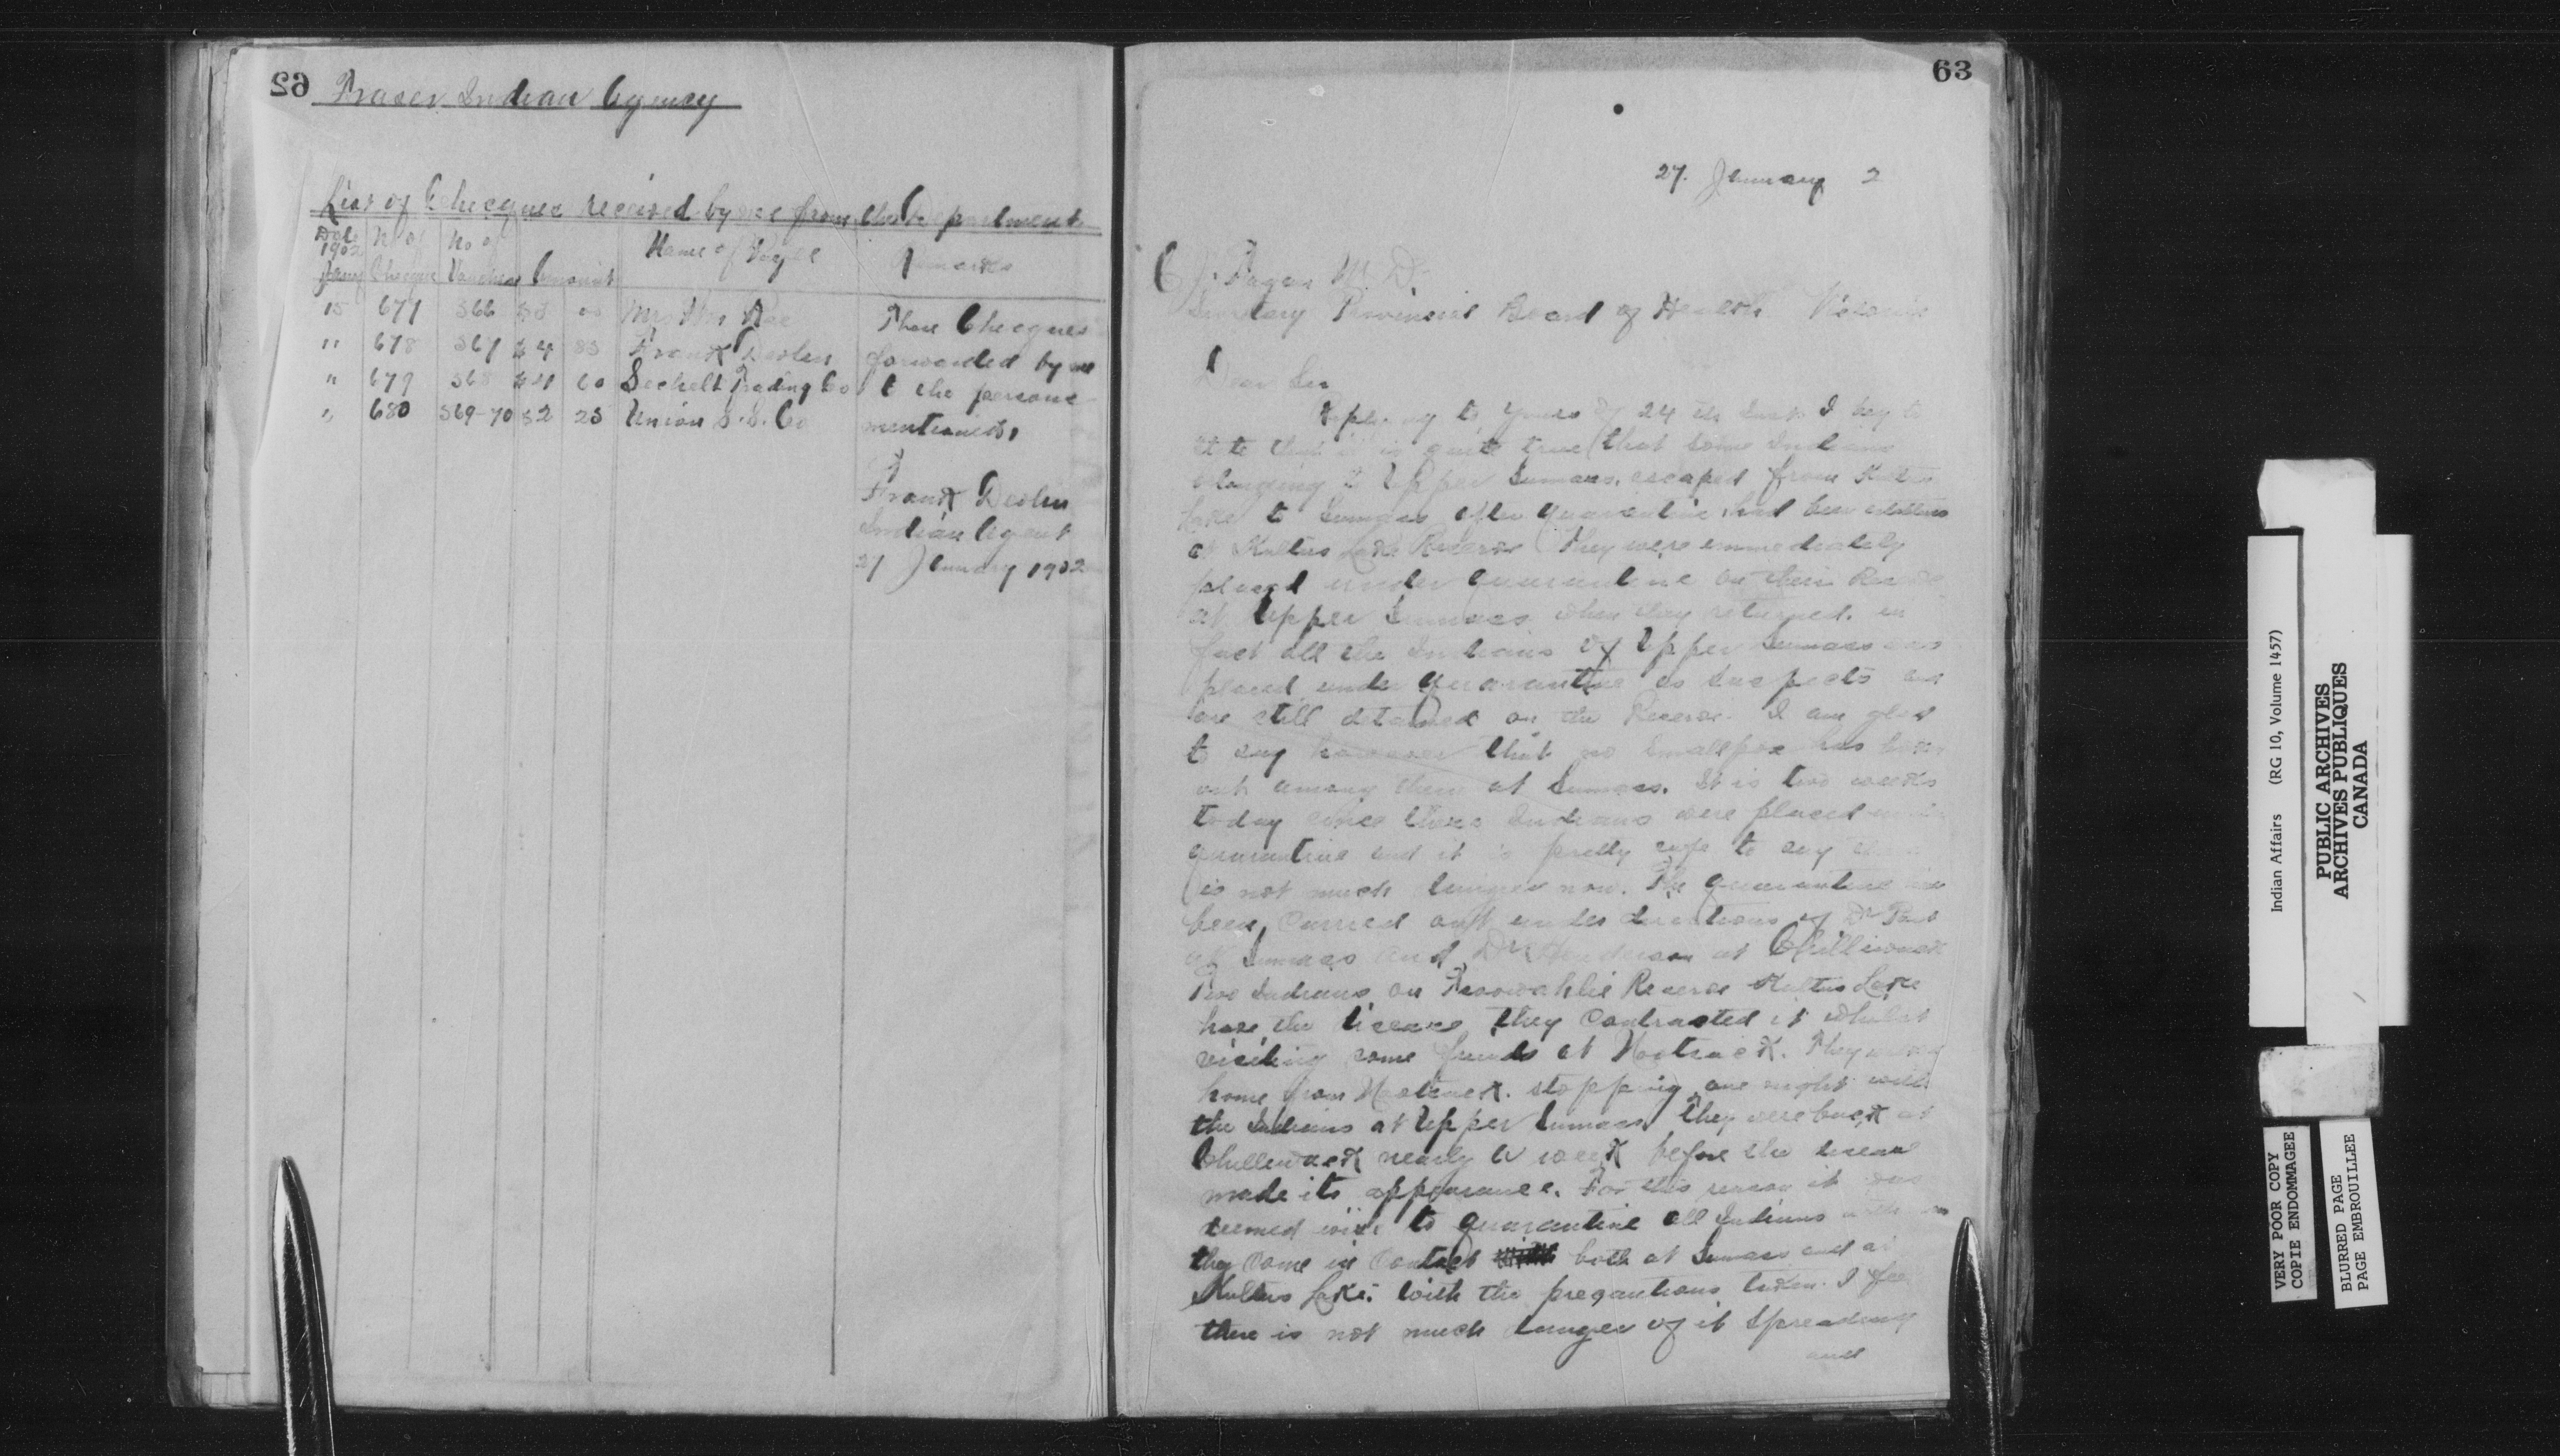 62
Fraser Indian Agency
List of Cheques received by me from the Department
Date 1902 Jany
No of Cheque
No of Voucher
Amount
Name of Payee
Remarks
15 677 366 53 00 Mrs Rae
" 678 367 83 Frank Devlin
" 679 368 60 Sechelt Trading Co
" 680 369-70 52 25 Union S.S. Co
These Cheques
forwarded by me
to the persons
mentioned,
Frank Devlin
Indian Agent
27 January 1902
63
27. January 2
C J. Fagan M. D.
Secretary Provincial Board of Health Victoria
Dear Sir
Replying to yours of 24 th Inst I beg to
state that it is quite true that some Indians
belonging to Upper Sumass, escaped from Kultus
Lake to Sumass after quarantine had been established
at Kultus Lake Reserve They were immediately
placed under quarantine on their Reserve
at Upper Sumass when they returned. in
fact all the Indians of Upper Sumass was
placed under quarantine as suspects and
are still detained on the Reserve. I am glad
to say however that no Smallpox has broken
out among them at Sumass. It is two weeks
today since these Indians were placed under
quarantine and it is pretty safe to say there
is not much danger now. The quarantine has
been carried out under directions of Dr
at Sumass and Dr Henderson at Chilliwack
Two Indians on Reserve Kultus Lake
have the disease they contracted it whilst
visiting some friends at Nooksack. They
home from Nooksack. stopping one night with
the Indians at Upper Sumass they were back at
Chilliwack nearly a week before the disease
made its appearance. For this reason it was
deemed wise to quarantine all Indians with whom
they came in contact both at Sumass and at
Kultus Lake. With the precautions taken I feel
there is not much danger of it spreading
and
Indian Affairs (RG 10, Volume 1457)
PUBLIC ARCHIVES
ARCHIVES PUBLIQUES
CANADA
VERY POOR COPY
COPIE ENDOMMAGEE
BLURRED PAGE
PAGE EMBROUILLEE